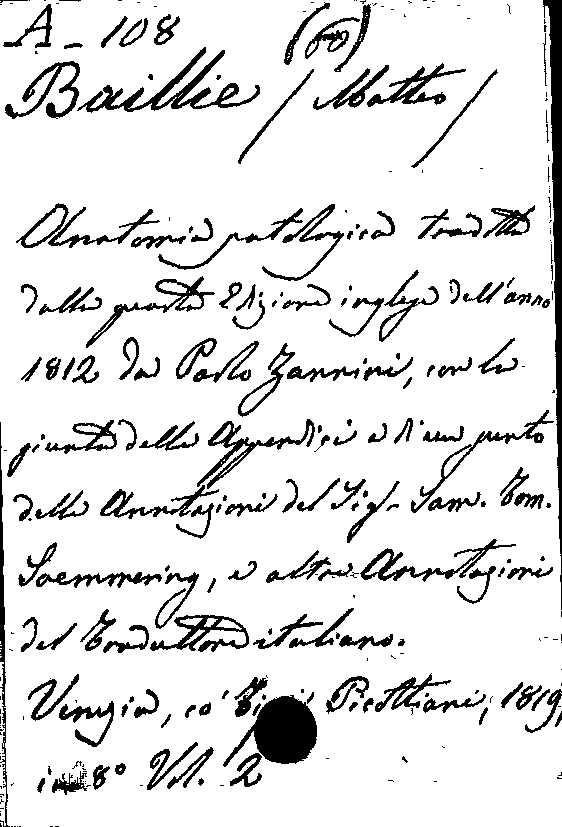 A - 108
Baillie / Matteo /
Anatomia patologica tradotta
dalla quarta Edizione inglese dell'anno
1812 da Paolo Zannini, con la
giunta delle Appendici e di un sunto
delle Annotazioni del Sig. Sam. Tom.
Soemmering, e altre Annotazioni
del Traduttore italiano.
Venezia, co' Tipi Picottiani, 1819,
in 8° Vol. 2